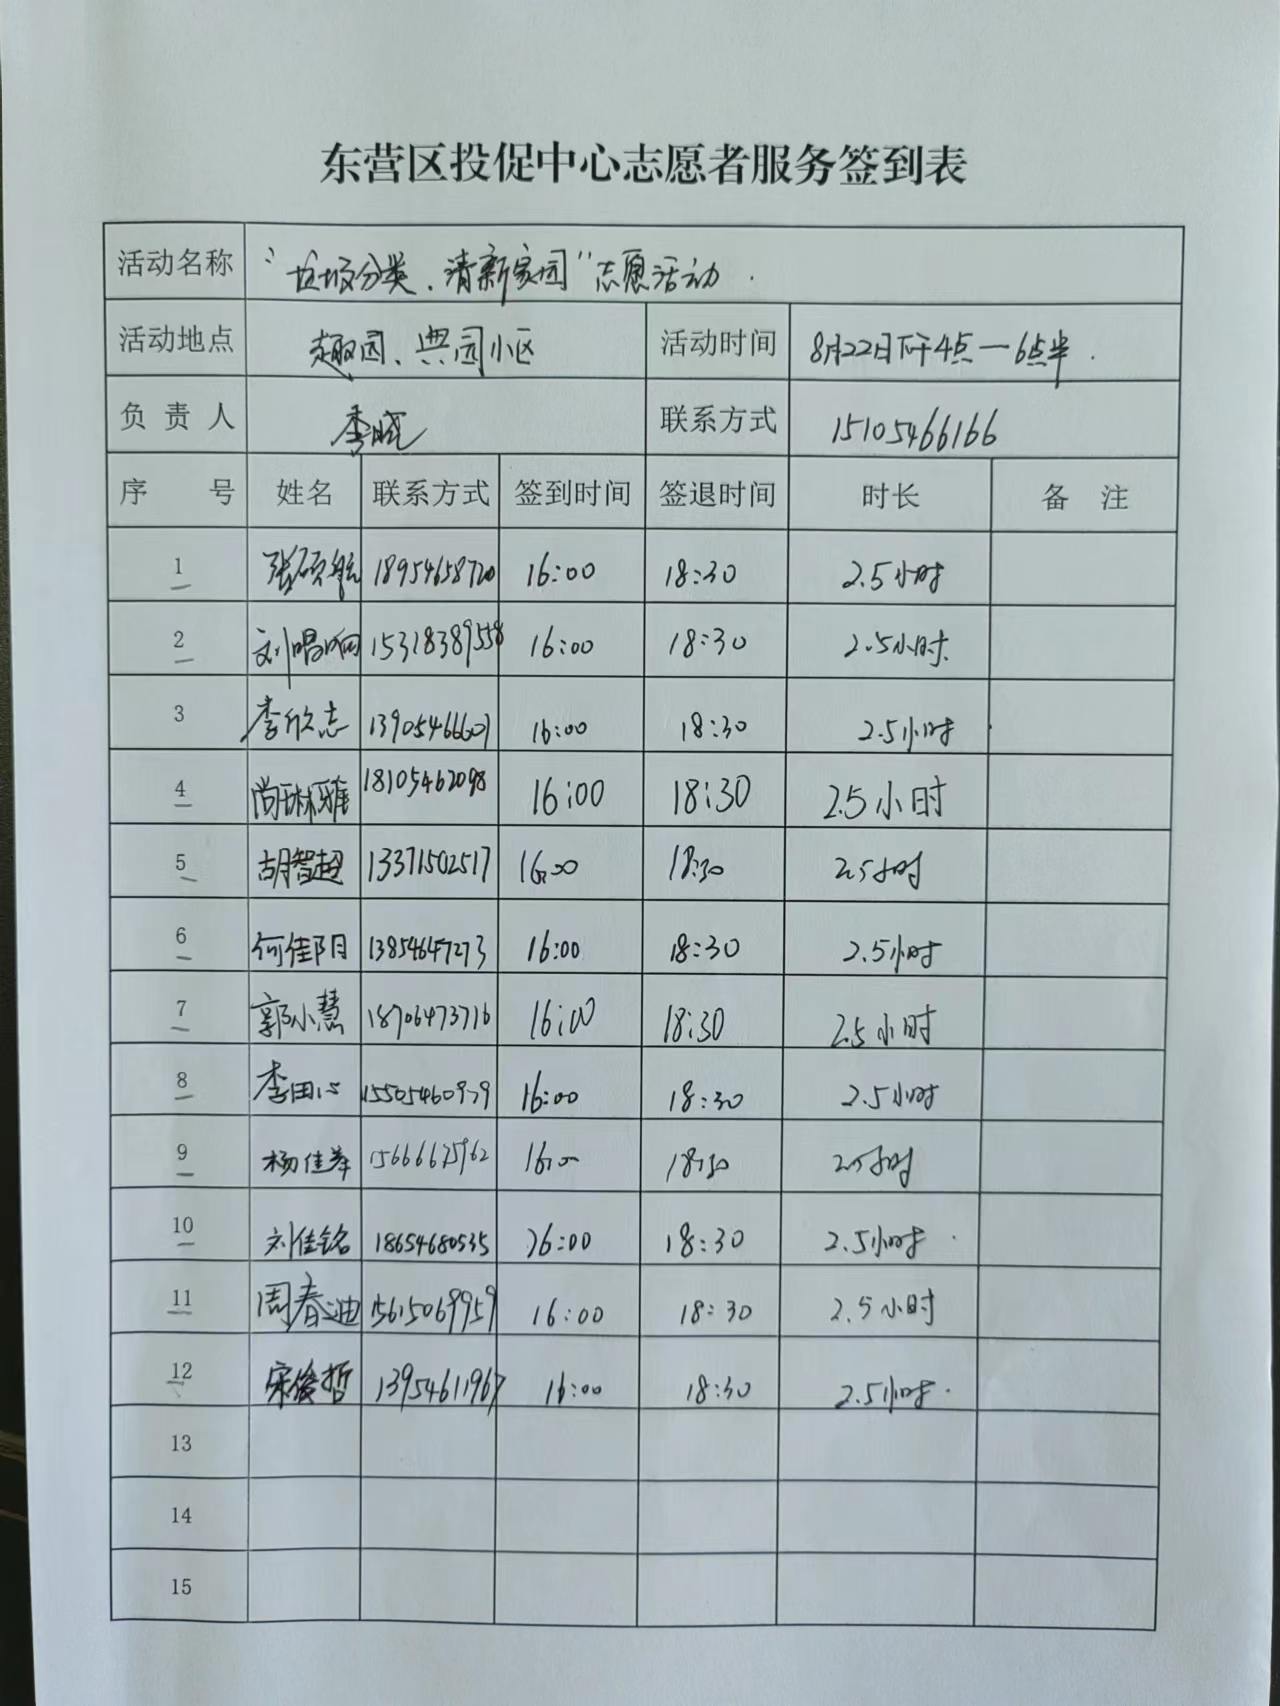 东营区投促中心志愿者服务签到表
活动名称 "垃圾分类、清新家园"志愿活动
活动地点 趣园、典园小区 活动时间 8月22日下午4点—6点半
负责人 李晓 联系方式 15105466166
序号 姓名 联系方式 签到时间 签退时间 时长 备注
1 张硕航 18954658720 16:00 18:30 2.5小时
2 刘唱响 15318389558 16:00 18:30 2.5小时
3 李欣志 16:00 18:30 2.5小时
4 尚琳雅 18105462098 16:00 18:30 2.5小时
5 胡智超 13371502517 16:00 18:30 2.5小时
6 何佳阳 13854647273 16:00 18:30 2.5小时
7 郭小慧 18706473716 16:00 18:30 2.5小时
8 李田心 15505460979 16:00 18:30 2.5小时
9 杨佳 16:00 18:30 2.5小时
10 刘佳铭 18654680535 16:00 18:30 2.5小时
11 周春迪 15615069959 16:00 18:30 2.5小时
12 宋俊哲 13954611967 16:00 18:30 2.5小时
13
14
15